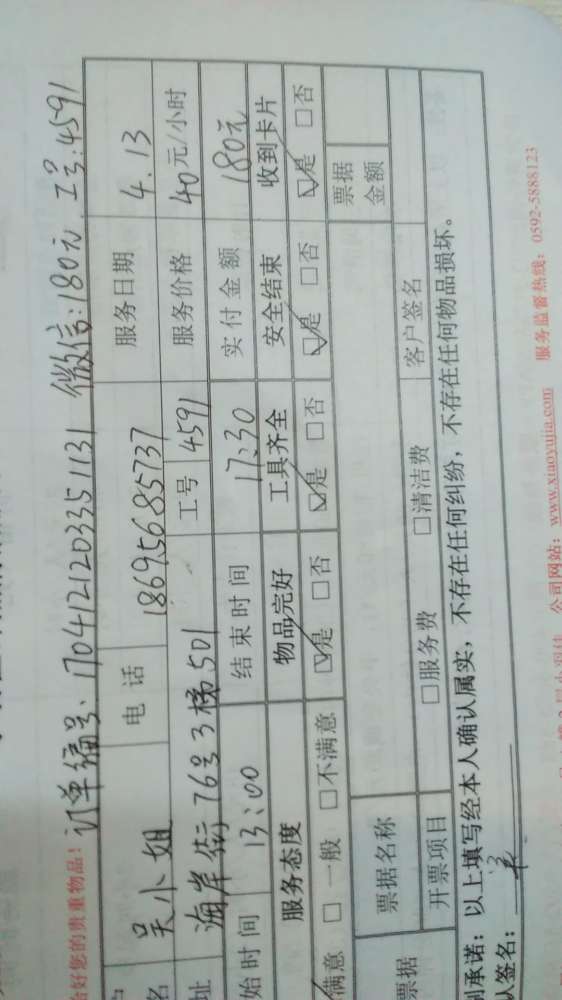 恰好您的贵重物品! 订单编号、1704121203351131 微信:180元 工号:4591
户名 吴小姐 电话 18695685737 服务日期 4.13
址 海岸街76号3梯501 工号 4591 服务价格 40元/小时
始时间 13:00 结束时间 17:30 实付金额 180元
服务态度 物品完好 工具齐全 安全结束 收到卡片
满意 □一般 □不满意 ☑是 □否 ☑是 □否 ☑是 □否 ☑是 □否
票据 票据名称 票据金额
开票项目 □服务费 □清洁费 客户签名
别承诺:以上填写经本人确认属实,不存在任何纠纷,不存在任何物品损坏。
人签名:
公司网站:www.xiaoyujia.com 服务监督热线:0592-5888123